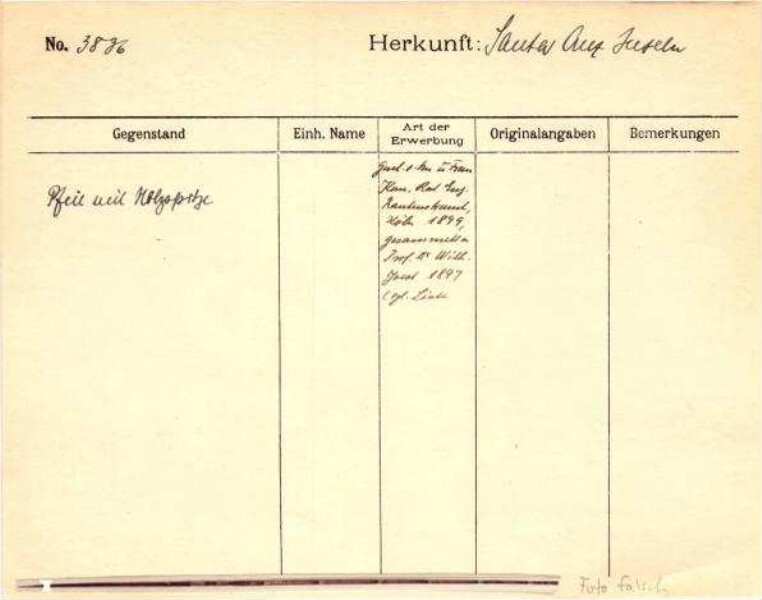 No. 3836 Herkunft: Santa Cruz Inseln
Gegenstand Einh. Name Art der Erwerbung Originalangaben Bemerkungen
Pfeil mit Holzspitze
u Frau
Kom. Rat Eug.
Rautenstrauch,
Köln 1899,
gesammelt v.
Prof. Dr Wilh.
Joest 1897
Liste
Foto falsch